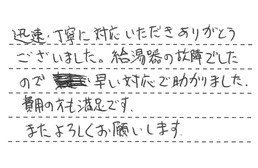 迅速、丁寧に対応いただきありがとう
ございました。給湯器の故障でした
ので 早い対応で助かりました。
費用の方も満足です。
またよろしくお願いします。